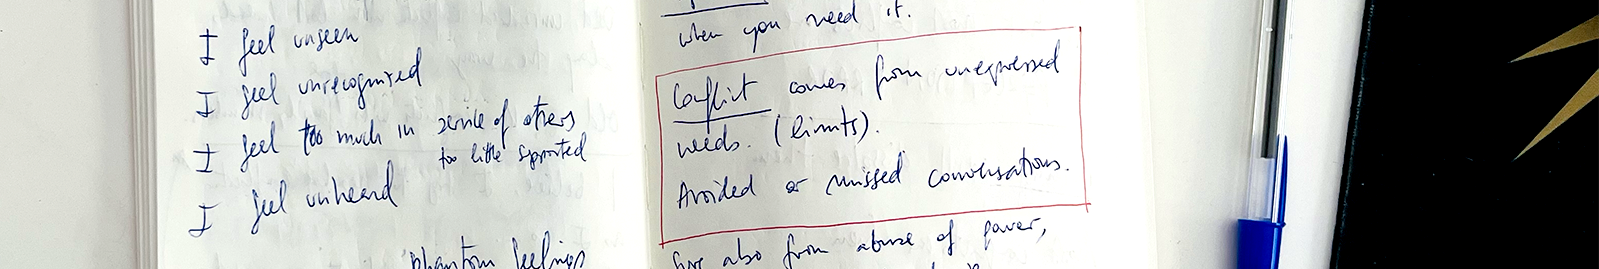 I feel unseen
I feel unrecognized
I feel too much in service of others
too little supported
I feel unheard
phantom feelings
when you need it.
Conflict comes from unexpressed
needs. (limits).
Avoided or missed conversations.
also from abuse of power,